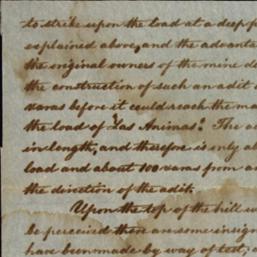 to strike upon the load at a deep
explained above, and the advanta
the original owners of the mine de
the construction of such an adit
varas before it could reach the ma
the load of "Las Animas." The a
in length, and therefore is only a
load and about 100 varas from a
the direction of the adit.
Upon the top of the hill w
be perceived there are some insign
have been made by way of test,